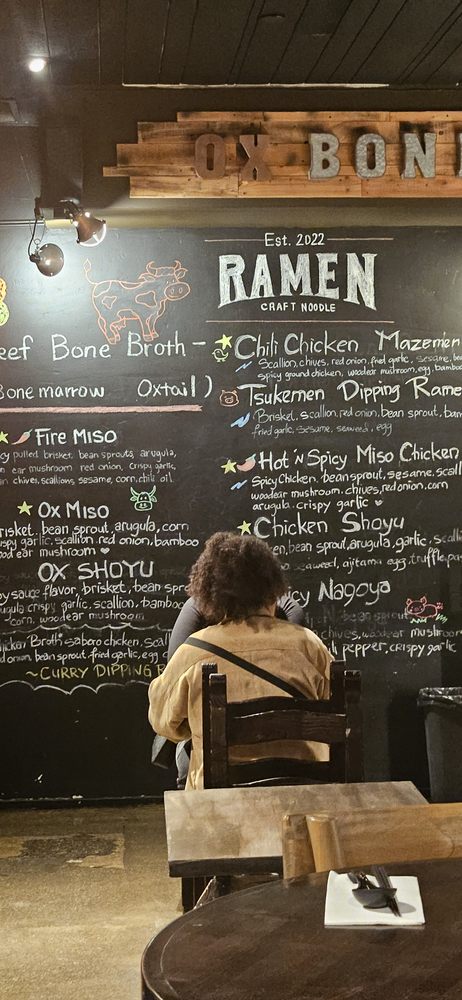 OX BON
Est. 2022
RAMEN
CRAFT NOODLE
eef Bone Broth -
Bone marrow Oxtail )
Fire Miso
pulled brisket, bean sprouts, arugula,
ear mushroom red onion, crispy garlic,
chives, scallions, sesame, corn, chili oil.
Ox Miso
risket, bean sprout, arugula, corn
garlic, scallion, red onion, bamboo
ood ear mushroom
OX SHOYU
sauce flavor, brisket, bean spro
ugula crispy garlic, scallion, bamboo
corn, woodear mushroom
Broth - saboro chicken, scal
onion, bean sprout, fried garlic, egg
~CURRY DIPPING
Chili Chicken Mazemen
Scallion, chives, red onion, fried garlic, sesame,
spicy ground chicken, woodear mushroom, egg, bamboo
Tsukemen Dipping Rame
Brisket, scallion, red onion, bean sprout, bam
fried garlic, sesame, seaweed, egg
Hot 'N Spicy Miso Chicken
Spicy Chicken, bean sprout, sesame, scall
woodear mushroom, chives, red onion, corn
arugula, crispy garlic
Chicken Shoyu
en, bean sprout, arugula, garlic, scalli
seaweed, ajitama egg, truffle, pa
icy Nagoya
bean sprout
chives, woodear mushroom
pepper, crispy garlic